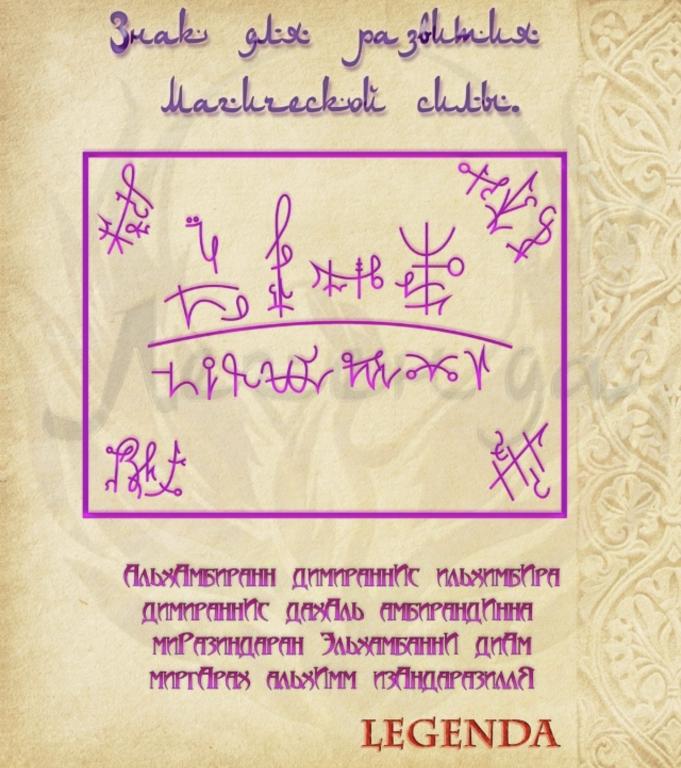 Знак для развития
Магической силы.
Легенда
АльхАмбиранн димираннИс ильхимбИра
димираннИс дахАль амбирандИнна
миРазиндаран ЭльхамбаннИ диАм
миргАрах альхИмм изАндаразиллЯ
LEGENDA